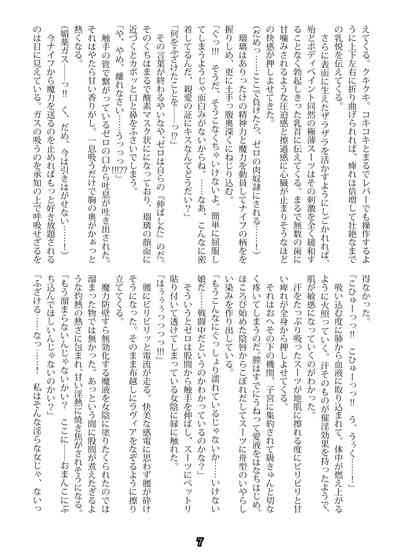 えてくる。クキクキ、コキコキとまるでレバーでも操作するよ
うに上下左右に折り曲げられれば、痺れは倍増して壮絶なまで
の乳悦を伝えてくる。
さらに表面に生えたザラザラを活かすようにしごかれれば、
殆どボディペイント同然の極薄スーツはその刺激を全く緩和す
ることなく勃起しきった乳首に伝えてくる。まるで無数の歯に
甘噛みされるような圧迫感と擦過感に心臓が止まりそうなほど
の快感が押しよせてきた。
(だめっ……ここで負けたら、ゼロの肉奴隷にされる……)
瑠璃はありったけの精神力と魔力を動員してナイフの柄を
握りしめ、更に土手っ腹奥深くにねじり込む。
「ぐっ!!　そうだ、そうこなくちゃいけないよ。簡単に屈服し
てしまうようじゃ面白みがないからね。……なあ、こんなに密
着してるんだ、親愛の証にキスなんてどうだい?」
「何をふざけたことを　っ!!」
その言葉が終わるやいなや、ゼロは自らの『伸ばした』のだ。
そのくちはまるで酸素マスク状にになっており、瑠璃の顔面に
近づくとカポッと口と鼻をふさいでしまう。
「や、やめ、離れなさい……うっっっ!!??」
触手の管で繋がっているゼロの口から吐息が吐き出された。
それはやたら甘い香りがし、一息吸うだけで胸の奥がかぁっと
(媚薬ガス……っ!!　く、だめ、今は引きはがせない……)
今ナイフから魔力を送るのを止めればもっと好き放題される
のは目に見えている。ガスの吸うのを承知の上で呼吸せざるを
得なかった。
「こひゅーっっ!!　こひゅーっっ!!　う、うぅ……」
吸い込む度に肺から血液に取り込まれて、体中が燃え上がる
ように火照っていく。汗そのものが催淫効果を持ったようで、
肌が敏感になっていくのがわかる。
汗をたっぷり吸ったスーツが地肌に擦れる度にピリピリと甘
い痺れが全身から押しよせてくる。
それはおへその下の機関、子宮に集約されて疑きゅんと切な
く疼いてしまうのだ。膣はすでにうねって愛液をはなちはじめ、
ほころび始めた陰唇からこぼれだしてスーツに舟型のいやらし
い染みを作り出している。
「もうこんなにぐっしょり濡れているじゃないか……いけない
娘だ……戦闘中だというのかわかっているのかな?」
そういうとゼロは股間から触手を伸ばし、スーツにペットリ
貼り付いて透けてしまっている女陰に縁に触れた。
「はうぅぅっっっ!!!」
腰にビリビリッと電流が走る。快美な感電に思わず腰が砕け
そうになった。そのまま布越しにラヴィアをなぞるように擦り
立ててくる。
魔力防壁すら無効化する魔液を女陰に塗りたくられたのでは
溜まった物では無かった。あっという間に股間が煮えたぎるよ
うな灼熱の熱さに包まれ、甘い淫熱に焼き焦がされそうになる。
「もう溜まらないんじゃないかい?　ここに……おまんこにぶ
ち込んでほしいんじゃないのかい?」
「ふざける……なっ……!　私はそんな淫らな女じゃ、ないっ
7